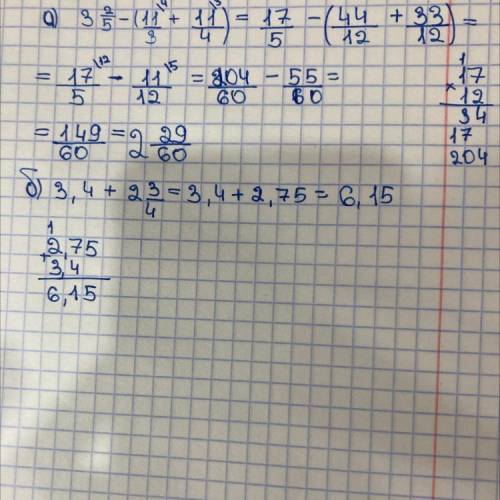 а) 3 2/5 - (11/3 \4 + 11/4 \3) = 17/5 - (44/12 + 33/12) =
= 17/5 \12 - 11/12 \5 = 204/60 - 55/60 =
= 149/60 = 2 29/60
1
17
× 12
34
17
204
б) 3,4 + 2 3/4 = 3,4 + 2,75 = 6,15
1
2,75
+ 3,4
6,15